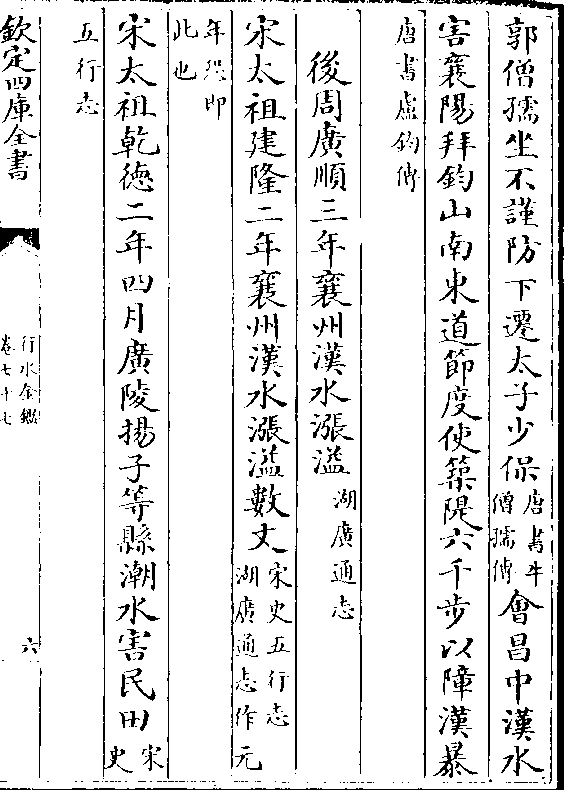 郭僧孺坐不謹防下遷太子少保唐書牛僧孺傳會昌中漢水
害襄陽拜鈞山南東道節度使築隄六千步以障漢暴
唐書盧鈞傳
後周廣順三年襄州漢水漲溢湖廣通志
宋太祖建隆二年襄州漢水漲溢數丈宋史五行志湖廣通志作元
年恐即此也
宋太祖乾德二年四月廣陵揚子等縣潮水害民田宋史
五行志
欽定四庫全書
行水金鑑
卷七十七
六